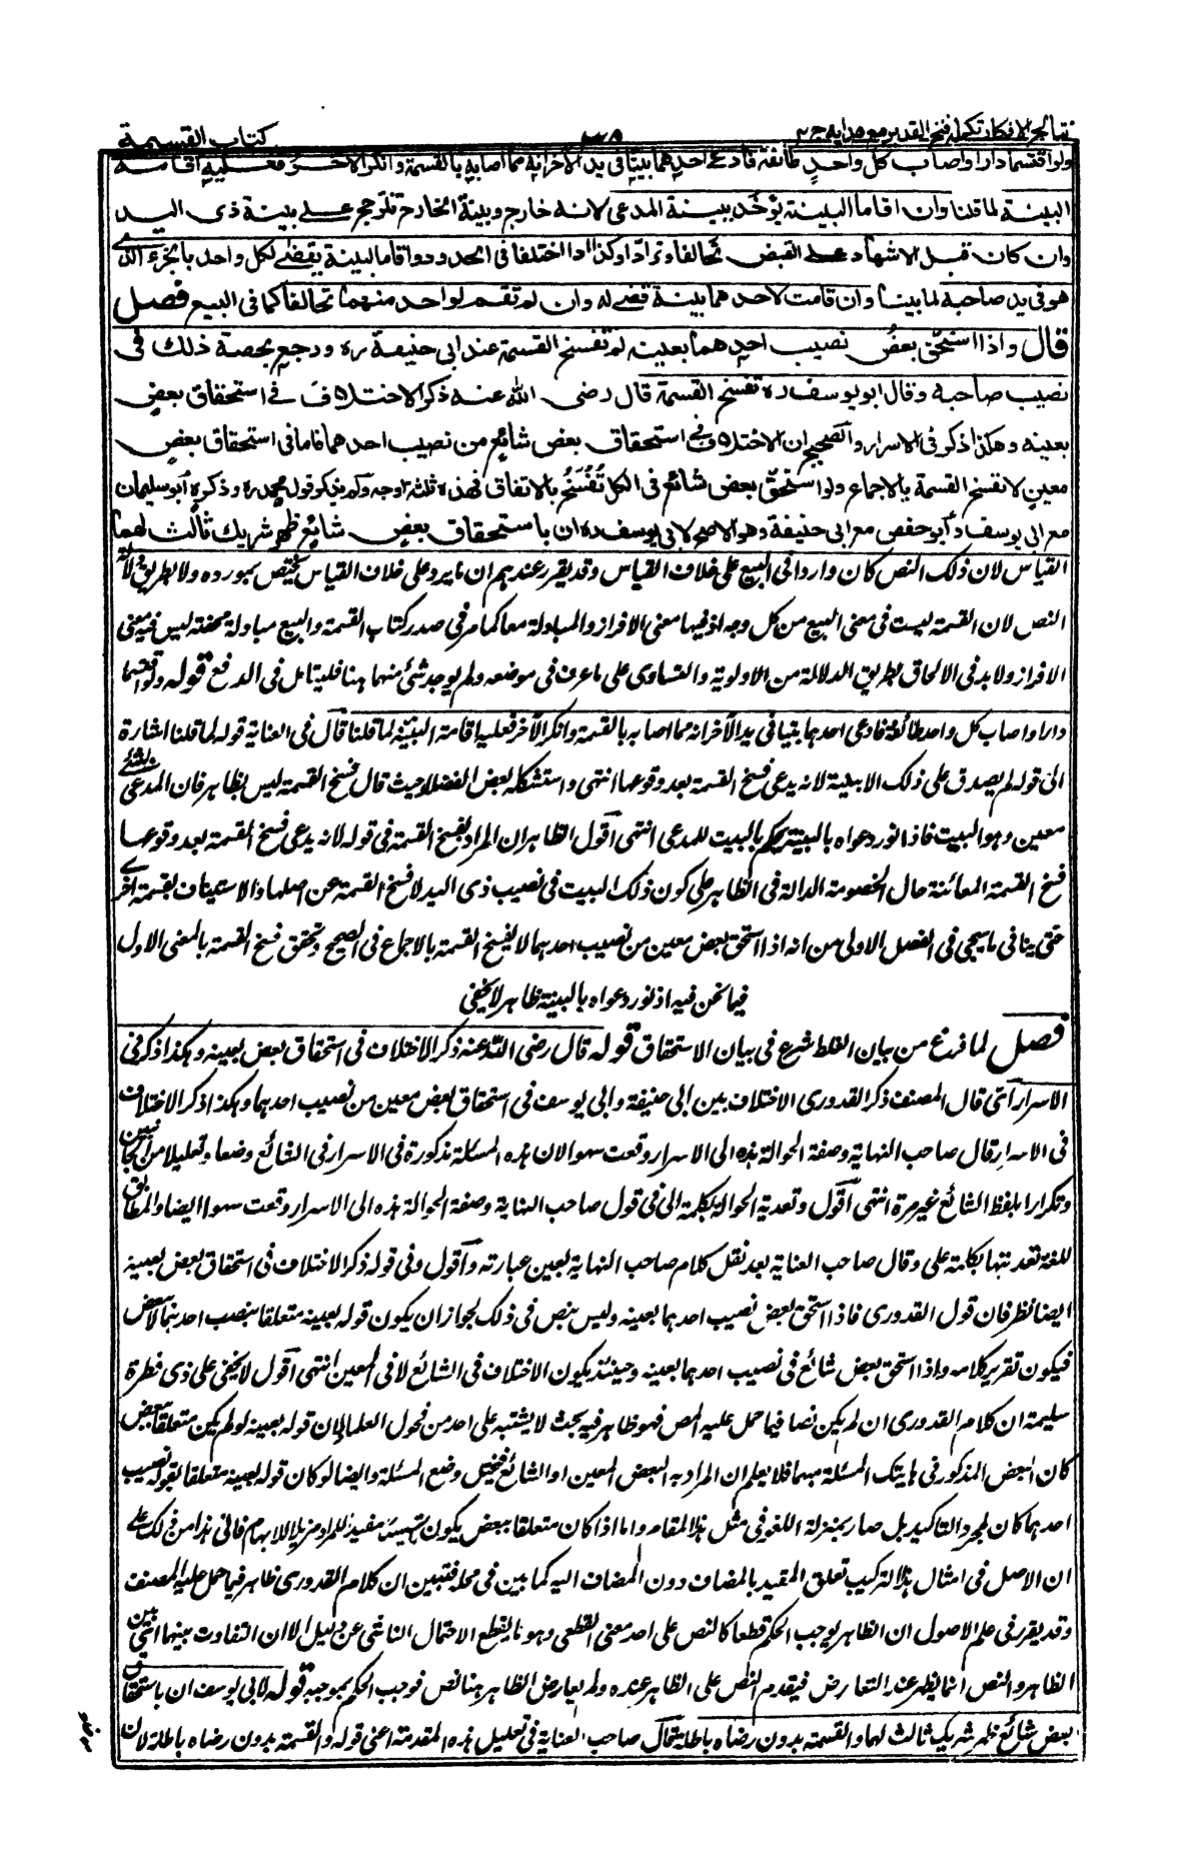 نتائج الافكار تكملہ فتح القدير مع هدايہ ج ٨
٣٨
كتاب القسمة
ولو اقتسما دارا واصاب كل واحدٍ طائفة فادعى احدهما بيتا في يد الآخر انه مما اصابه بالقسمة وانكر الاخر فعليه اقامة
البينة لما قلنا وان اقاما البينة يؤخذ ببينة المدعي لانه خارج وبينة الخارج تترجح على بينة ذى اليد
وان كان قبل الاشهاد على القبض تحالفا وترادا وكذا اذا اختلفا فى الحدود واقاما البينة يقضى لكل واحد بالجزء الذي
هو في يد صاحبه لما بينا وان قامت لاحدهما بينة قضى له وان لم تقم لواحد منهما تحالفا كما فى البيع فصل
قال واذا استحق بعضُ نصيب احدهما بعينه لم تفسخ القسمة عند ابى حنيفة ره ورجع بحصة ذلك فى
نصيب صاحبه وقال ابو يوسف ره تفسخ القسمة قال رضى الله عنه ذكر الاختلاف فے استحقاق بعضٍ
بعينه وهكذا ذكر فى الاسرار والصحيح ان الاختلاف فے استحقاق بعض شائع من نصيب احدهما فاما فى استحقاق بعض
معينٍ لا تفسخ القسمة بالاجماع ولو استحق بعض شائع فى الكل تُفْسَخُ بالاتفاق فهذه ثلثة اوجه ولم يذكر قول محمد ره وذكره ابو سليمان
مع ابى يوسف وابو حفص مع ابى حنيفة وهو الاصح لابى يوسف ره ان باستحقاق بعضٍ شائع ظهر شريك ثالث لهما
القياس لان ذلك النص كان واردا فى البيع على خلاف القياس وقد يقرر عندهم ان ما يرد على خلاف القياس يختص بمورده ولا بطريق دلالة
النص لان القسمة ليست فى معنى البيع من كل وجه اذ فيها معنى الافراز والمبادلة معا كما مر فى صدر كتاب القسمة والبيع مبادلة محضة ليس فيه معنى
الافراز ولا بد فى الالحاق بطريق الدلالة من الاولوية والتساوى على ما عرف فى موضعه ولم يوجد شئ منهما ههنا فليتامل فى الدفع قوله ولو اقتسما
دارا واصاب كل واحد طائفة فادعى احدهما بيتا فى يد الآخر انه مما اصابه بالقسمة وانكر الآخر فعليه اقامة البينة لما قلنا قال فى العناية قوله لما قلنا اشارة
الى قوله لم يصدق على ذلك الا ببينة لانه يدعى فسخ القسمة بعد وقوعها انتهى واستشكله بعض الفضلاء حيث قال فسخ القسمة ليس بظاهر فان المدعى لشئ
معين وهو البيت فاذا نور دعواه بالبينة يحكم بالبيت للمدعى انتهى اقول الظاهر ان المراد بفسخ القسمة فى قوله لانه يدعى فسخ القسمة بعد وقوعها
فسخ القسمة المعاينة حال الخصومة الدالة فى الظاهر على كون ذلك البيت فى نصيب ذى اليد لا فسخ القسمة عن اصلها والاستيناف بقسمة اخرے
حتى ينافى ما سيجئ فى الفصل الاولى من انه اذا استحق بعض معين من نصيب احدهما لا يفسخ القسمة بالاجماع فى الصحيح وتحقق فسخ القسمة بالمعنى الاول
فيما نحن فيه اذ نور دعواه بالبينة ظاهر لا يخفى
فصل لما فرغ من بيان الغلط شرع فى بيان الاستحقاق قوله قال رضى الله عنه ذكر الاختلاف فى استحقاق بعض بعينه وهكذا ذكر فى
الاسرار آتى قال المصنف ذكر القدورى الاختلاف بين ابى حنيفة وابى يوسف فى استحقاق بعض معين من نصيب احدهما وهكذا ذكر الاختلاف
فى الاسرار قال صاحب النهاية وصفة الحوالة هذه الى الاسرار وقعت سهوا لان هذه المسئلة مذكورة فى الاسرار فى الشائع وضعا وتعليلا من الجانبين
وتكرارا بلفظ الشائع غير مرة انتهى اقول وتعدية الحوالة بكلمة الى فى قول صاحب النهاية وصفة الحوالة هذه الى الاسرار وقعت سهوا ايضا والمطابق
للغة تعديتها بكلمة على وقال صاحب العناية بعد نقل كلام صاحب النهاية بعين عبارته واقول وفى قوله ذكر الاختلاف فى استحقاق بعض بعينه
ايضا نظر فان قول القدورى فاذا استحق بعض نصيب احدهما بعينه وليس بنص فى ذلك لجواز ان يكون قوله بعينه متعلقا بنصيب احدهما لا ببعض
فيكون تقرير كلامه واذا استحق بعض شائع فى نصيب احدهما بعينه وحينئذ يكون الاختلاف فى الشائع لا فى المعين انتهى اقول لا يخفى على ذى فطرة
سليمة ان كلام القدورى ان لم يكن نصا فيما حمل عليه المص فهو ظاهر فيه بحيث لا يشتبه على احد من فحول العلماء لان قوله بعينه لو لم يكن متعلقا ببعض
كان البعض المذكور فى هاتيك المسئلة مبهما فلا يعلم ان المراد به البعض المعين او الشائع فيختل وضع المسئلة وايضا لو كان قوله بعينه متعلقا بقوله نصيب
احدهما كان لمجرد التاكيد بل صار بمنزلة اللغو فى مثل هذا المقام واما اذا كان متعلقا ببعض يكون تاسيسا مفيدا للمراد مزيلا للابهام فانى هذا من ذلك على
ان الاصل فى امثال هذا التركيب تعلق المقيد بالمضاف دون المضاف اليه كما بين فى محله فتبين ان كلام القدورى ظاهر فيما حمل عليه المصنف
وقد يقرر فى علم الاصول ان الظاهر يوجب الحكم قطعا كالنص على احد معنى القطعى وهو ما يقطع الاحتمال الناشى عن دليل الا ان التفاوت بينهما اعنى بين
الظاهر والنص انما يظهر عند التعارض فيقدم النص على الظاهر عنده ولم يعارض الظاهر هنا نص فوجب الحكم بموجبه قوله لابى يوسف ان باستحقاق
بعض شائع ظهر شريك ثالث لهما والقسمة بدون رضاه باطلة قال صاحب العناية فى تعليل هذه المقدمة اعنى قوله والقسمة بدون رضاه باطلة لان